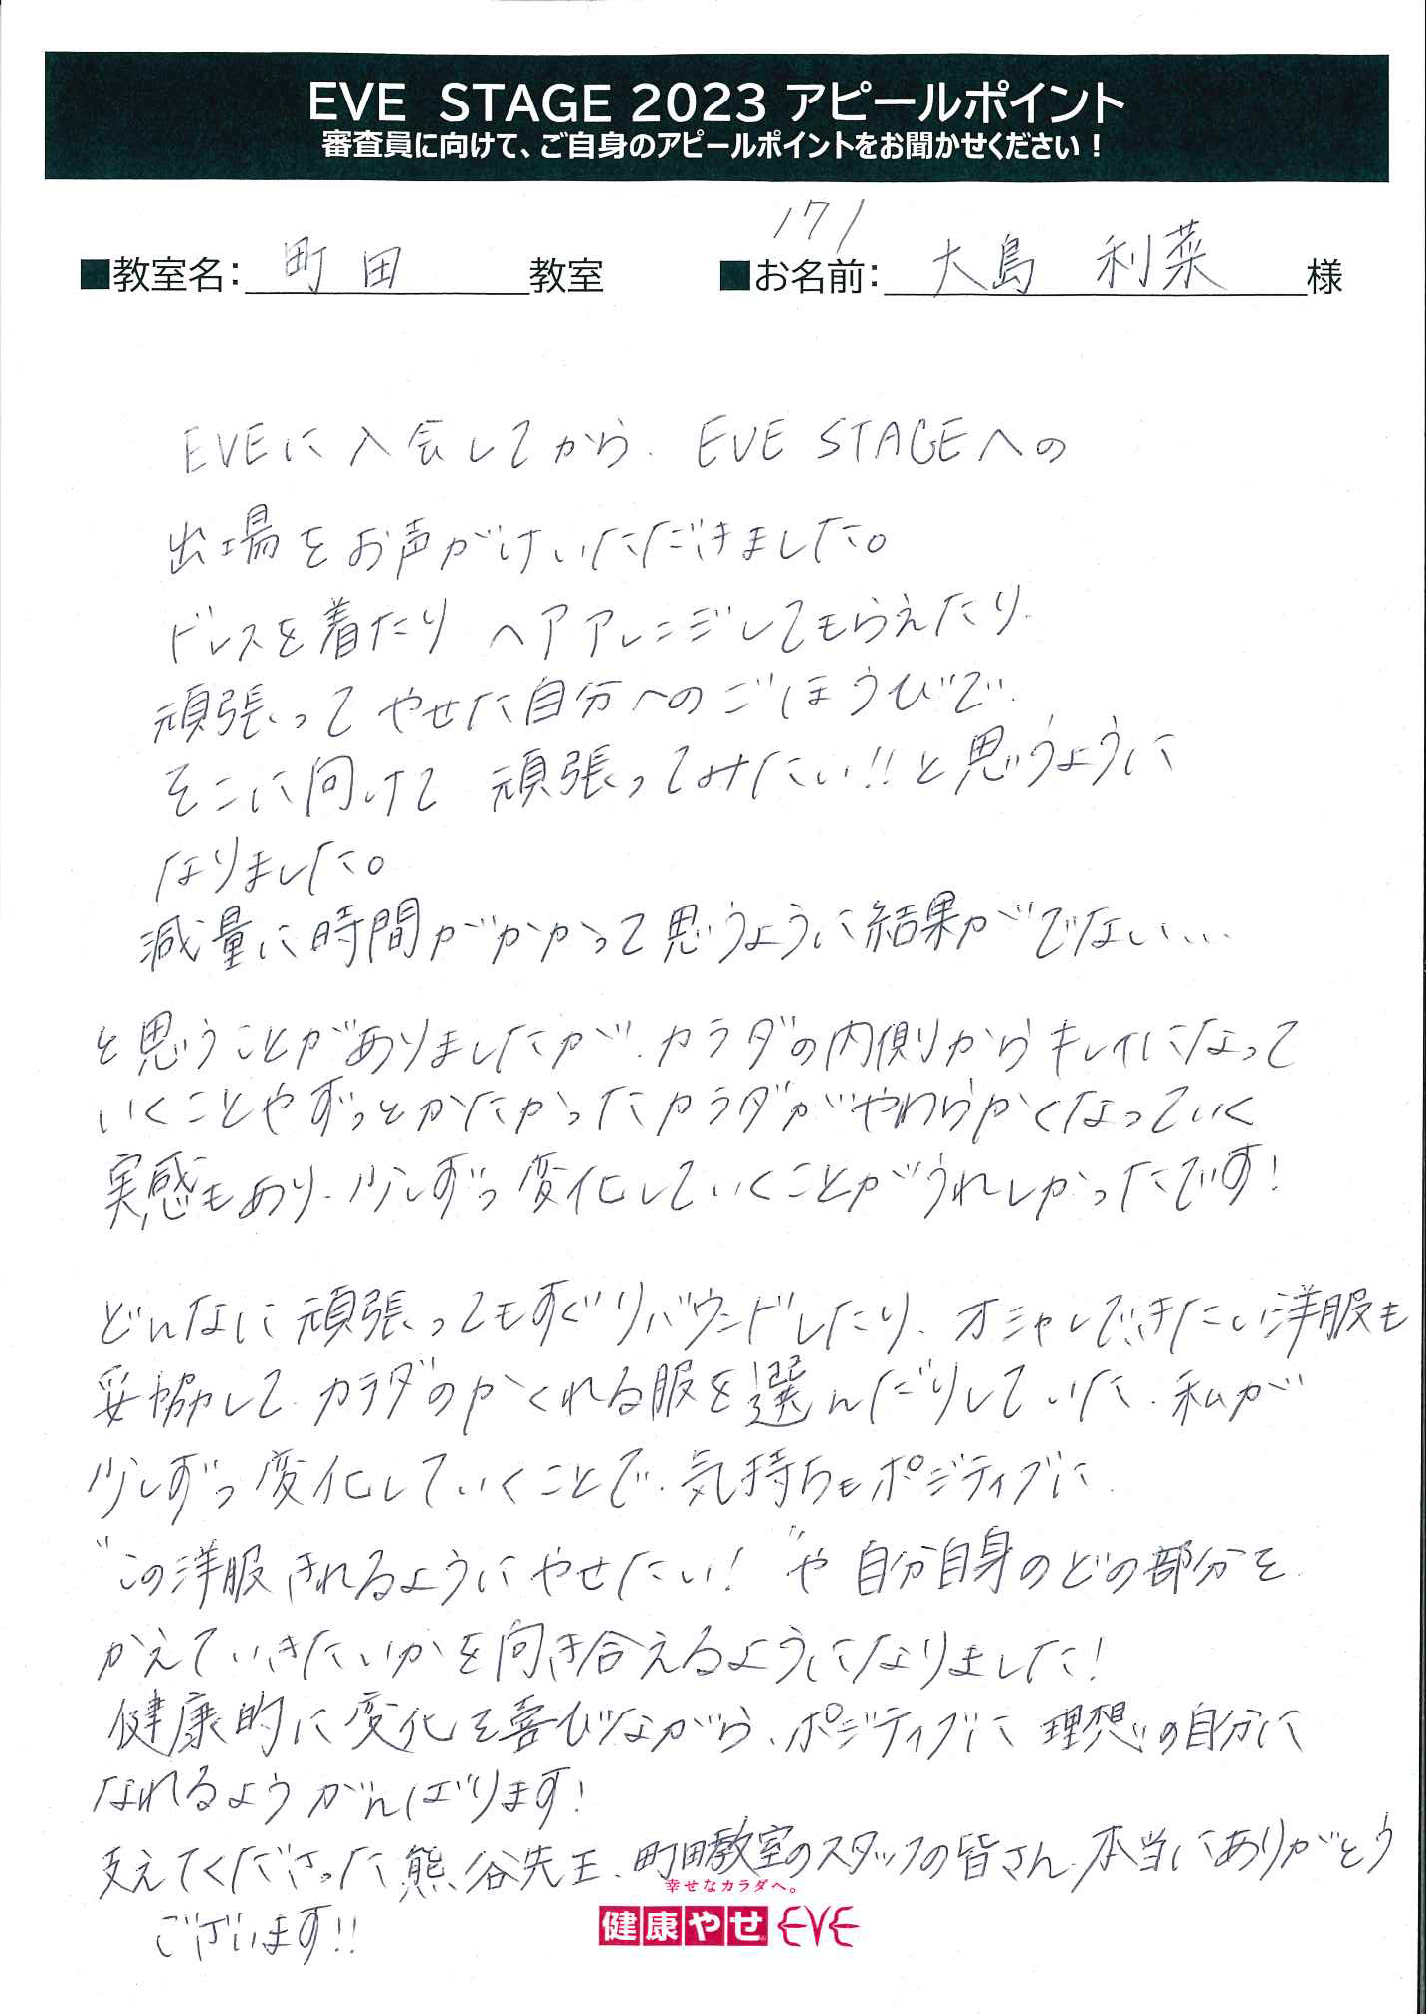 EVE STAGE 2023 アピールポイント
審査員に向けて、ご自身のアピールポイントをお聞かせください！
171
■教室名： 町田 教室 ■お名前： 大島 利菜 様
EVEに入会してから、EVE STAGEへの
出場をお声がけいただきました。
ドレスを着たり ヘアアレンジしてもらえたり、
頑張ってやせた自分へのごほうびで、
そこに向けて 頑張ってみたい!!と思うように
なりました。
減量に時間がかかって思うように結果がでない...
と思うことがありましたが、カラダの内側からキレイになって
いくことやずっとかたかったカラダがやわらかくなっていく
実感もあり、少しずつ変化していくことがうれしかったです!
どんなに頑張ってもすぐリバウンドしたり、オシャレできたい洋服も
妥協して、カラダのかくれる服を選んだりしていた、私が
少しずつ変化していくことで、気持ちもポジティブに、
"この洋服きれるようにやせたい!"や 自分自身のどの部分を
かえていきたいかを向き合えるようになりました!
健康的に変化を喜びながら、ポジティブに理想の自分に
なれるようがんばります!
支えてくださった熊谷先生、町田教室のスタッフの皆さん、本当にありがとう
ございます!!
幸せなカラダへ。
健康やせ EVE